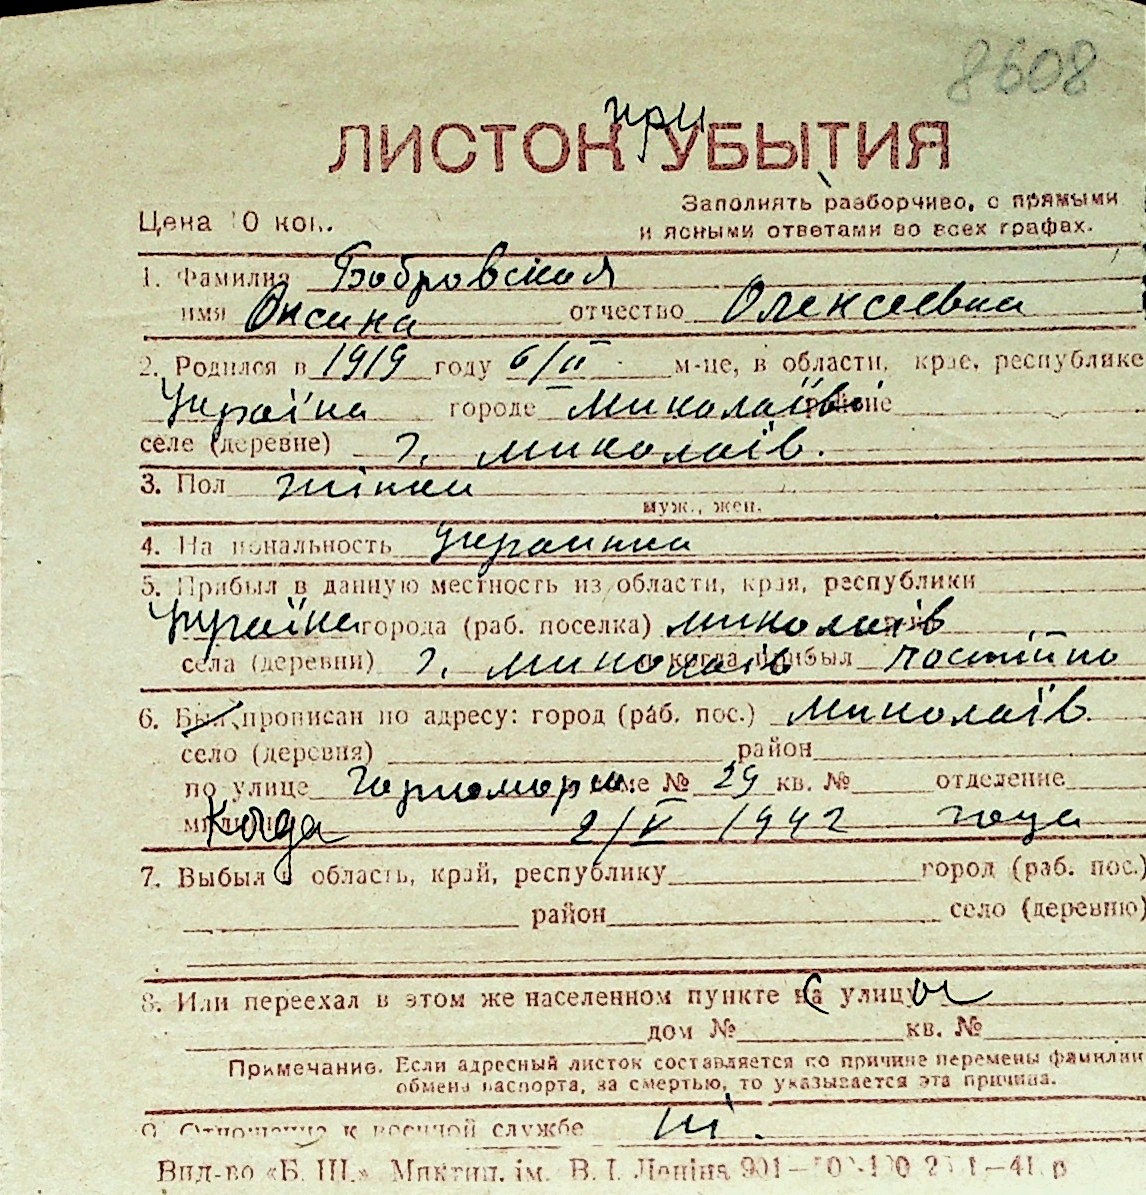 8608
при
ЛИСТОК УБЫТИЯ
Заполнять разборчиво, с прямыми
Цена 10 коп. и ясными ответами во всех графах.
1. Фамилия Бобровская
имя Оксана отчество Олексеевна
2. Родился в 1919 году 6/II м-це, в области, крае, республике
Україна городе Миколаїв районе
селе (деревне) г. Миколаїв.
3. Пол жінки
муж., жен.
4. Национальность Украинка
5. Прибыл в данную местность из области, края, республики
Україна города (раб. поселка) Миколаїв
села (деревни) г. Миколаїв и когда прибыл постійно
6. Был прописан по адресу: город (раб. пос.) Миколаїв
село (деревня) район
по улице доме № 29 кв. № отделение
милиции Когда 2/V 1942 года
7. Выбыл в область, край, республику город (раб. пос.)
район село (деревню)
8. Или переехал в этом же населенном пункте С улицы
дом № кв. №
Примечание. Если адресный листок составляется по причине перемены фамилии
обмена паспорта, за смертью, то указывается эта причина.
9. Отношение к военной службе ні.
Вид-во «Б. Ш.» Миктип. ім. В. І. Леніна 901